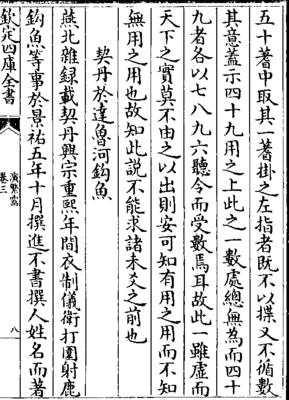 五十蓍中取其一蓍掛之左指者既不以揲又不循數
其意蓋示四十九用之上此之一數處總無為而四十
九者各以七八九六聽令而受數焉耳故此一雖虛而
天下之實莫不由之以出則安可知有用之用而不知
無用之用也故知此說不能求諸未爻之前也
契丹於達魯河鈎魚
燕北雜録載契丹興宗重熙年間衣制儀衛打圍射鹿
鈎魚等事於景祐五年十月撰進不書撰人姓名而著
欽定四庫全書
演繁露
卷三
八